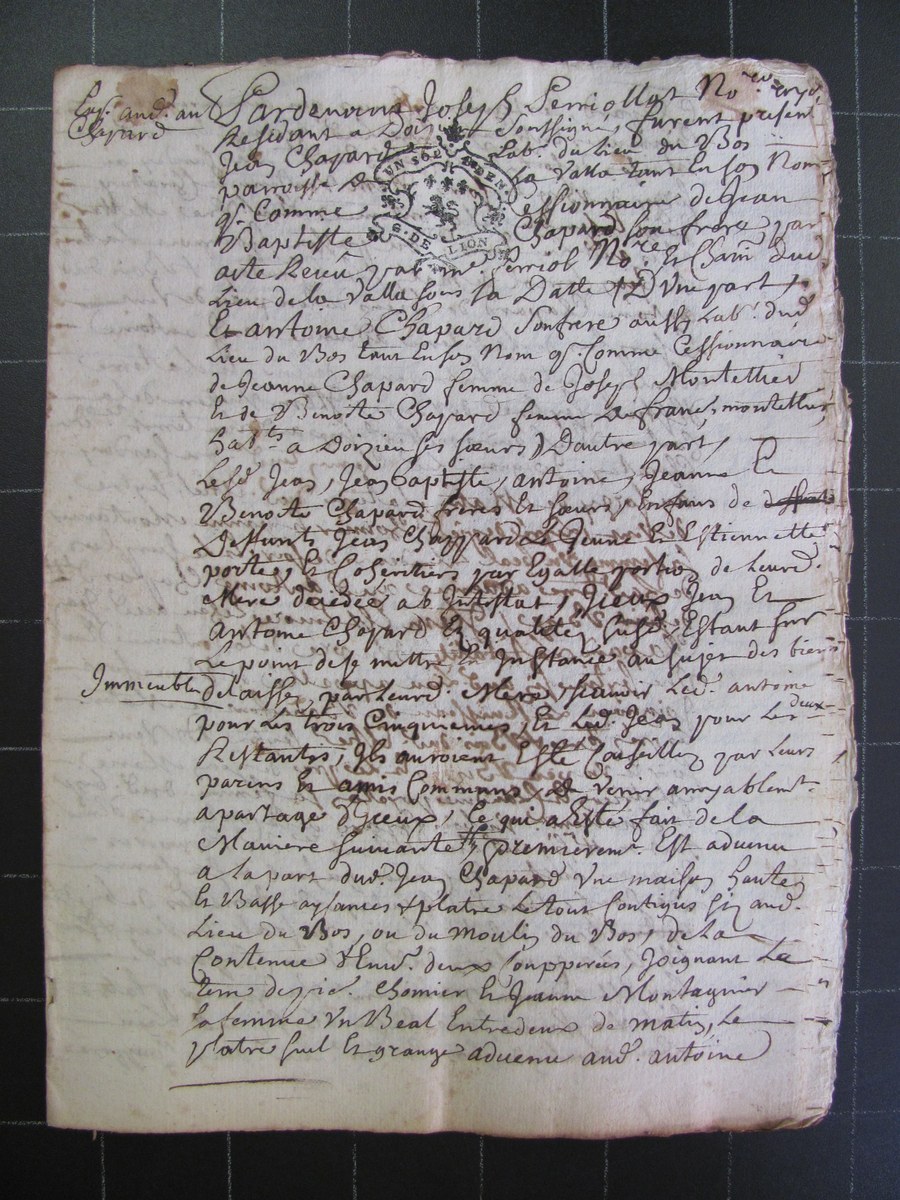 Pardevant Joseph Perriollat No.re royal
Residant a Doiz Soussigné, furent présent
Jean Chapard Lab.r du lieu du Bos
parroisse de La Valla tant En son Nom
q. Comme Cessionnaire de Jean
Baptiste Chapard son frere par
acte Receu par me. Perriol No.re Et Cham dud.
Lieu de la Valla sous sa Datte, D'Une part,
Et antoine Chapard Son frere aussy Lab.r dud.
Lieu du Bos tant En son Nom q. Comme Cessionnaire
de Jeanne Chapard femme de Joseph Montellier
Et de Benoite Chapard femme de franc. montellier
hab.ts a Doizieu ses sœurs, D'autre part,
Lesd. Jean, Jean baptiste, antoine, Jeanne Et
Benoite Chapard freres Et sœurs, Enfans de
Deffunts Jean Chappard le Jeune Et Estiennette
porte, Et Coheritiers par Egalle portion de Leurd.
Mere décédée ab Intestat, Iceux Jean Et
Antoine Chapard En qualitez Susd. Estant sur
Le point de se mettre En Instance au sujet des biens
Immeubles delaissez par Leurd. Mere, sçavoir Led. antoine
pour Les trois Cinquiemes, Et Led. Jean pour Les deux
Restantes, Ils auroient Esté Conseillez par Leurs
parens Et amis Communs, de Venir amyablem.t
a partage d'Iceux, Ce qui a Esté fait de la
Maniere suivante, premierem.t Est advenu
a La part dud. Jean Chapard Une maison haute
Et Basse aysances & platre Le tout Contigus Siz aud.
Lieu du Bos, ou du Moulin du Bos, de La
Contenue d'Env. deux Coupperées, Joignant La
terre de Chomier Et Jeanne Montagnier
sa femme Un Beal Entredeux de matin, Le
platre suel Et grange advenue aud. antoine
Chapard
UN SOL
G. DE LION